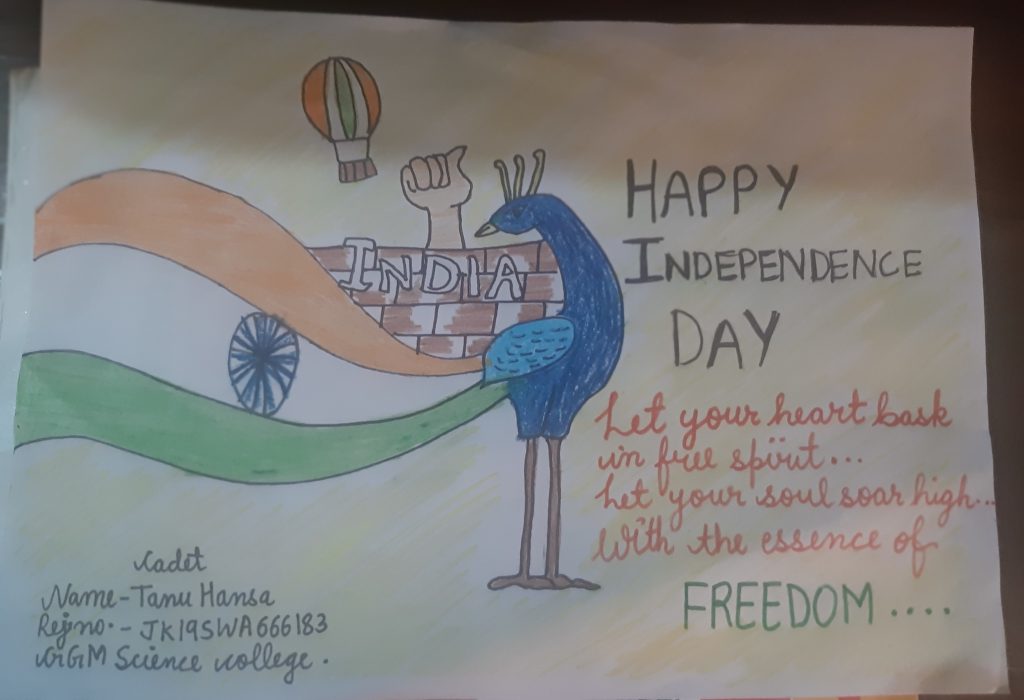 INDIA
HAPPY
INDEPENDENCE
DAY
Let your heart bask
in free spirit...
Let your soul soar high...
With the essence of
FREEDOM ....
Cadet
Name-Tanu Hansa
Rejno.- JK19SWA666183
GGM Science college.